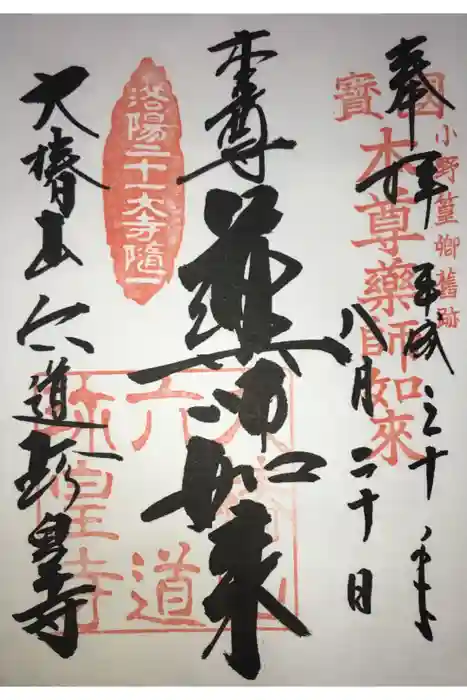 奉拝 平成三十年
八月二十日
小野篁卿舊跡
國寶
本尊藥師如來
本尊
薬師如来
洛陽二十一大寺随一
大椿山
六道
珎皇寺
大椿山 六道珍皇寺